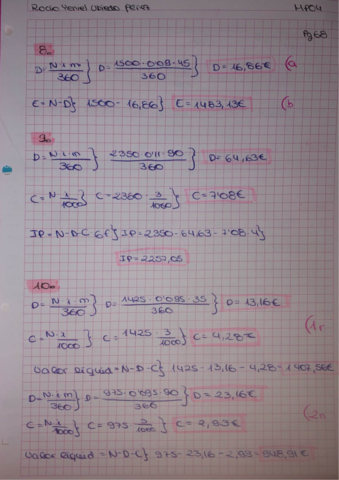 MP04
Pg 68
8.
D = N·i·m/360 } D = 1500·0'09·45/360 } D = 16,86€ (a
E = N-D } 1500 - 16,86 } C = 1483,13€ (b
9.
D = N·i·m/360 } 2350·0'11·90/360 } D = 64,63€
C = N i/1000 } C = 2360· 3/1000 } C = 7'08€
IP = N-D-C 6f } IP = 2350-64,63-7'08-4 }
IP = 2257,05
10.
D = N·i·m/360 } D = 1425·0'095·35/360 } D = 13,16€
C = N·i/1000 } C = 1425· 3/1000 } C = 4,28€ (1r
Valor líquid = N-D-C } 1425 - 13,16 - 4,28 = 1407,56€
D = N·i·m/360 } D = 975·0'095·90/360 } D = 23,16€
C = N·i/1000 } C = 975· 3/1000 } C = 2,93€ (2n
Valor líquid = N-D-C } 975 - 23,16 - 2,93 = 948,91€